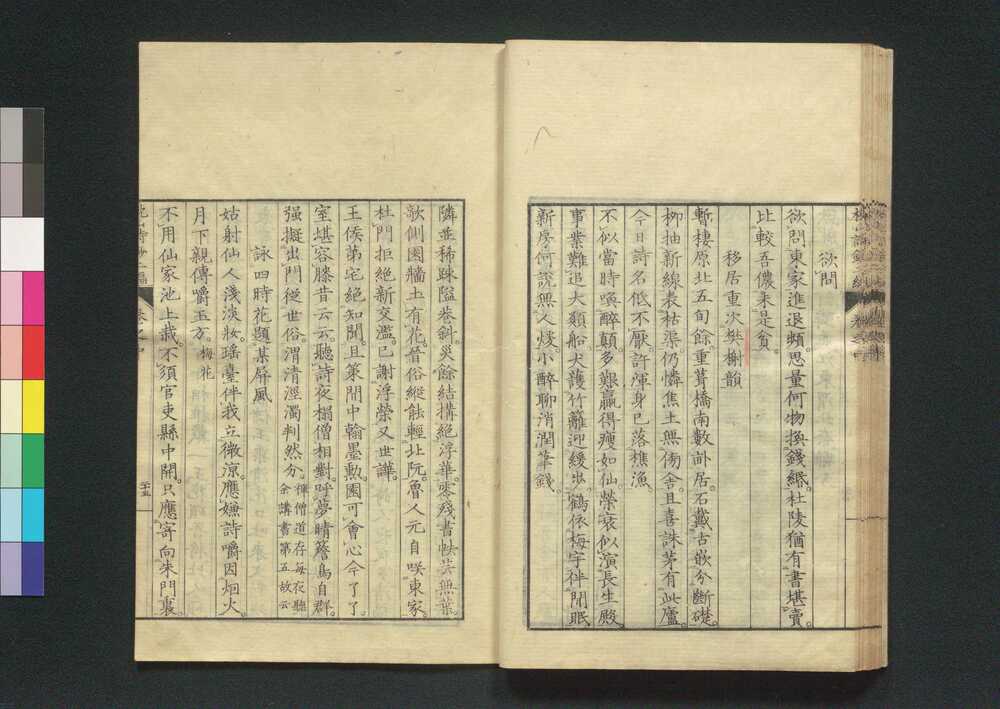 欲問
欲問東家進退頻。思量何物換錢緡。杜陵猶有書堪賣。
比較吾儂未是貧。
移居重次樊榭韻
暫棲原北五旬餘。重葺橋南數畝居。石戴古嵌分斷礎。
柳抽新線表枯渠。仍憐焦土無傍舍。且喜誅茅有此廬。
今日詩名低不厭。許渾身已落樵漁。
不似當時喚醉顛。多艱贏得瘦如仙。榮哀似演長生殿。
事業難追大願船。犬護竹籬迎緩步。鶴依梅宇伴閒眠。
新房何説無人煖。小醉聊消潤筆錢。
隣並稀踈隘巷斜。災餘結構絕浮華。零殘書帙芸無葉。
欹側園牆土有花。晉俗縱飽輕北阮。魯人元自咲東家。
杜門拒絕新交濫。已謝浮榮又世譁。
王侯苐宅絕知聞。且策閒中翰墨勲。園可會心今了了。
室堪容膝昔云云。聽詩夜榻僧相對。呼夢晴簷鳥自群。
强擬出門從世俗。渭清涇濁判然分。禪僧道存每夜聽
余講書第五故云
詠四時花題某屏風
姑射仙人淺淡妝。瑶臺伴我立微涼。應嫌詩嚼因烟火。
月下親傳嚼玉方。梅花
不用仙家池上栽。不須官吏縣中開。只應寄向朱門裏。
二十五